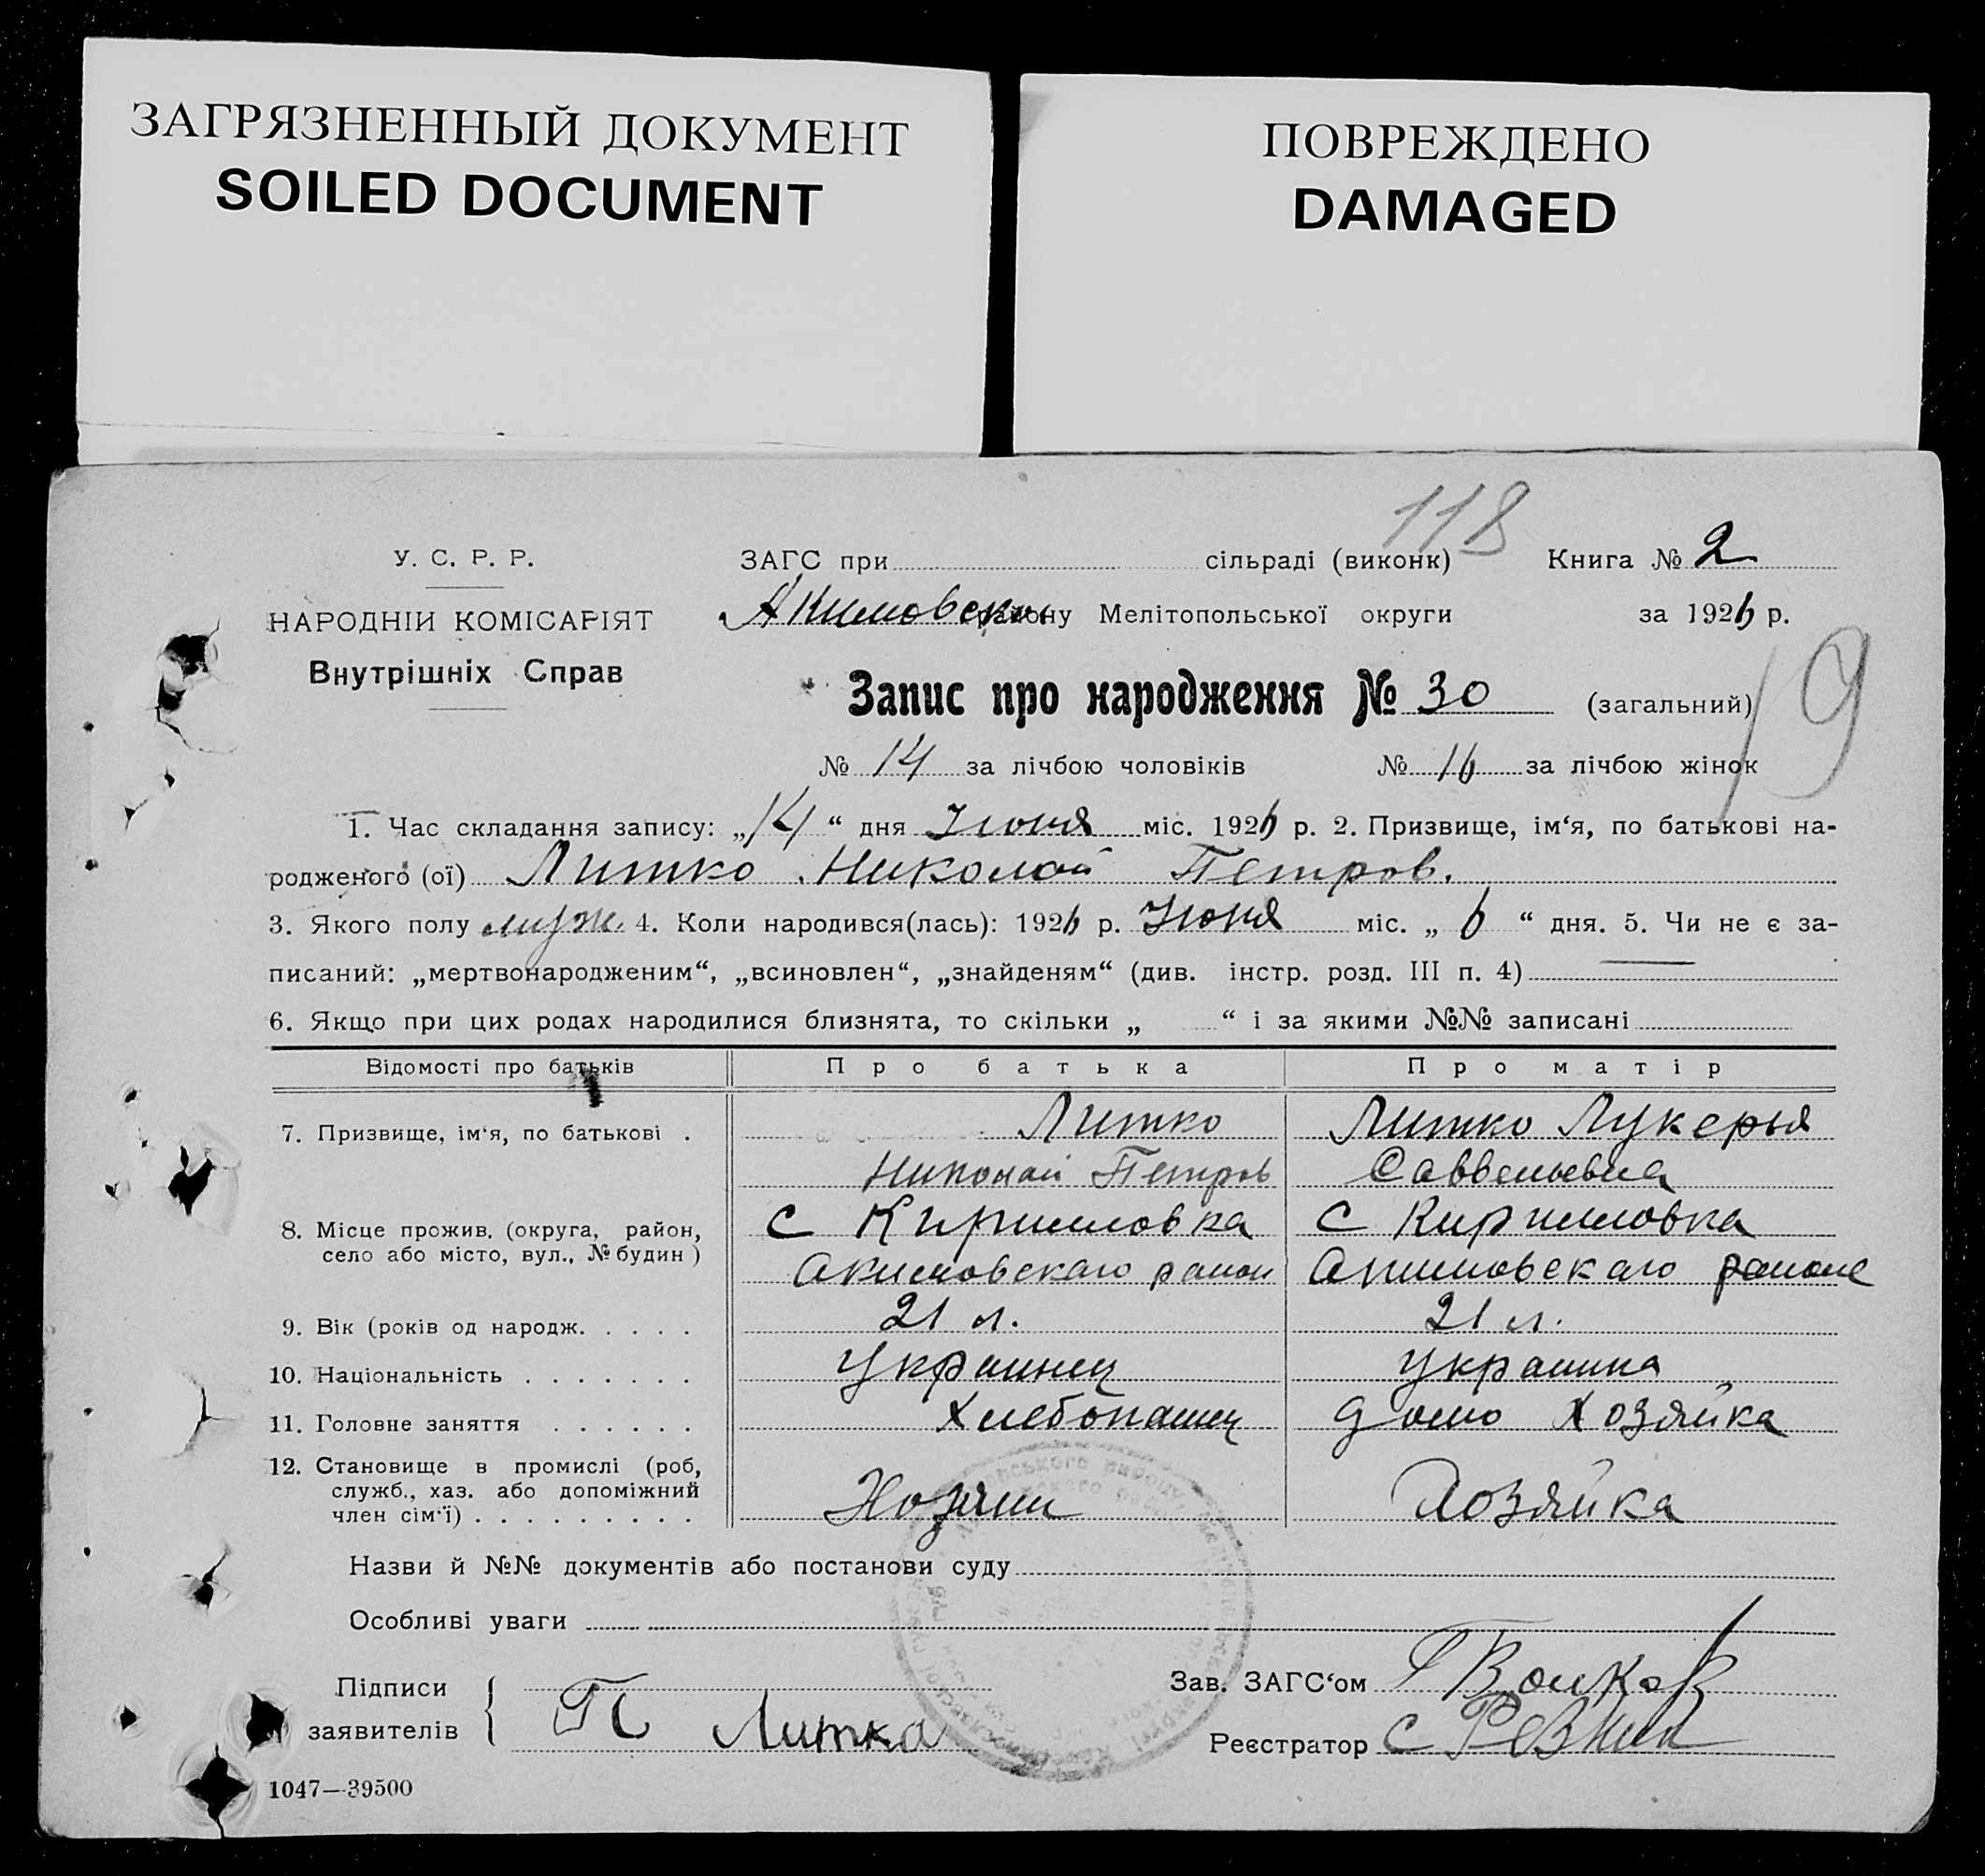 ЗАГРЯЗНЕННЫЙ ДОКУМЕНТ
SOILED DOCUMENT
ПОВРЕЖДЕНО
DAMAGED
118
У. С. Р. Р.
ЗАГС при сільраді (виконк) Книга № 2
НАРОДНІЙ КОМІСАРІЯТ
Акимовский району Мелітопольської округи за 1926 р.
Внутрішніх Справ
Запис про народження № 30 (загальний)
19
№ 14 за лічбою чоловіків № 16 за лічбою жінок
1. Час складання запису: „14“ дня Июня міс. 1926 р. 2. Призвище, ім‘я, по батькові на-
родженого (ої) Литко Николай Петров.
3. Якого полу муж. 4. Коли народився(лась): 1926 р. Июня міс. „ 6 “ дня. 5. Чи не є за-
писаний: „мертвонародженим“, „всиновлен“, „знайденям“ (див. інстр. розд. III п. 4) —
6. Якщо при цих родах народилися близнята, то скільки „ “ і за якими №№ записані
Відомості про батьків Про батька Про матір
7. Призвище, ім‘я, по батькові . Литко Литко Лукерья
Николай Петров Савельевна
8. Місце прожив. (округа, район, с Кирилловка с Кирилловка
село або місто, вул., № будин ) Акимовскаго район Акимовскаго районе
9. Вік (років од народж. . . . . 21 л. 21 л.
10. Національність . . . . . . . Украинец украинка
11. Головне заняття . . . . . . Хлебопашец домо Хозяйка
12. Становище в промислі (роб,
служб., хаз. або допоміжний Хозяин Хозяйка
член сім‘ї) . . . . . . . . .
Назви й №№ документів або постанови суду
Особливі уваги
Підписи
заявителів П Литка
Зав. ЗАГС‘ом Волков
Реєстратор С Резник
1047—39500